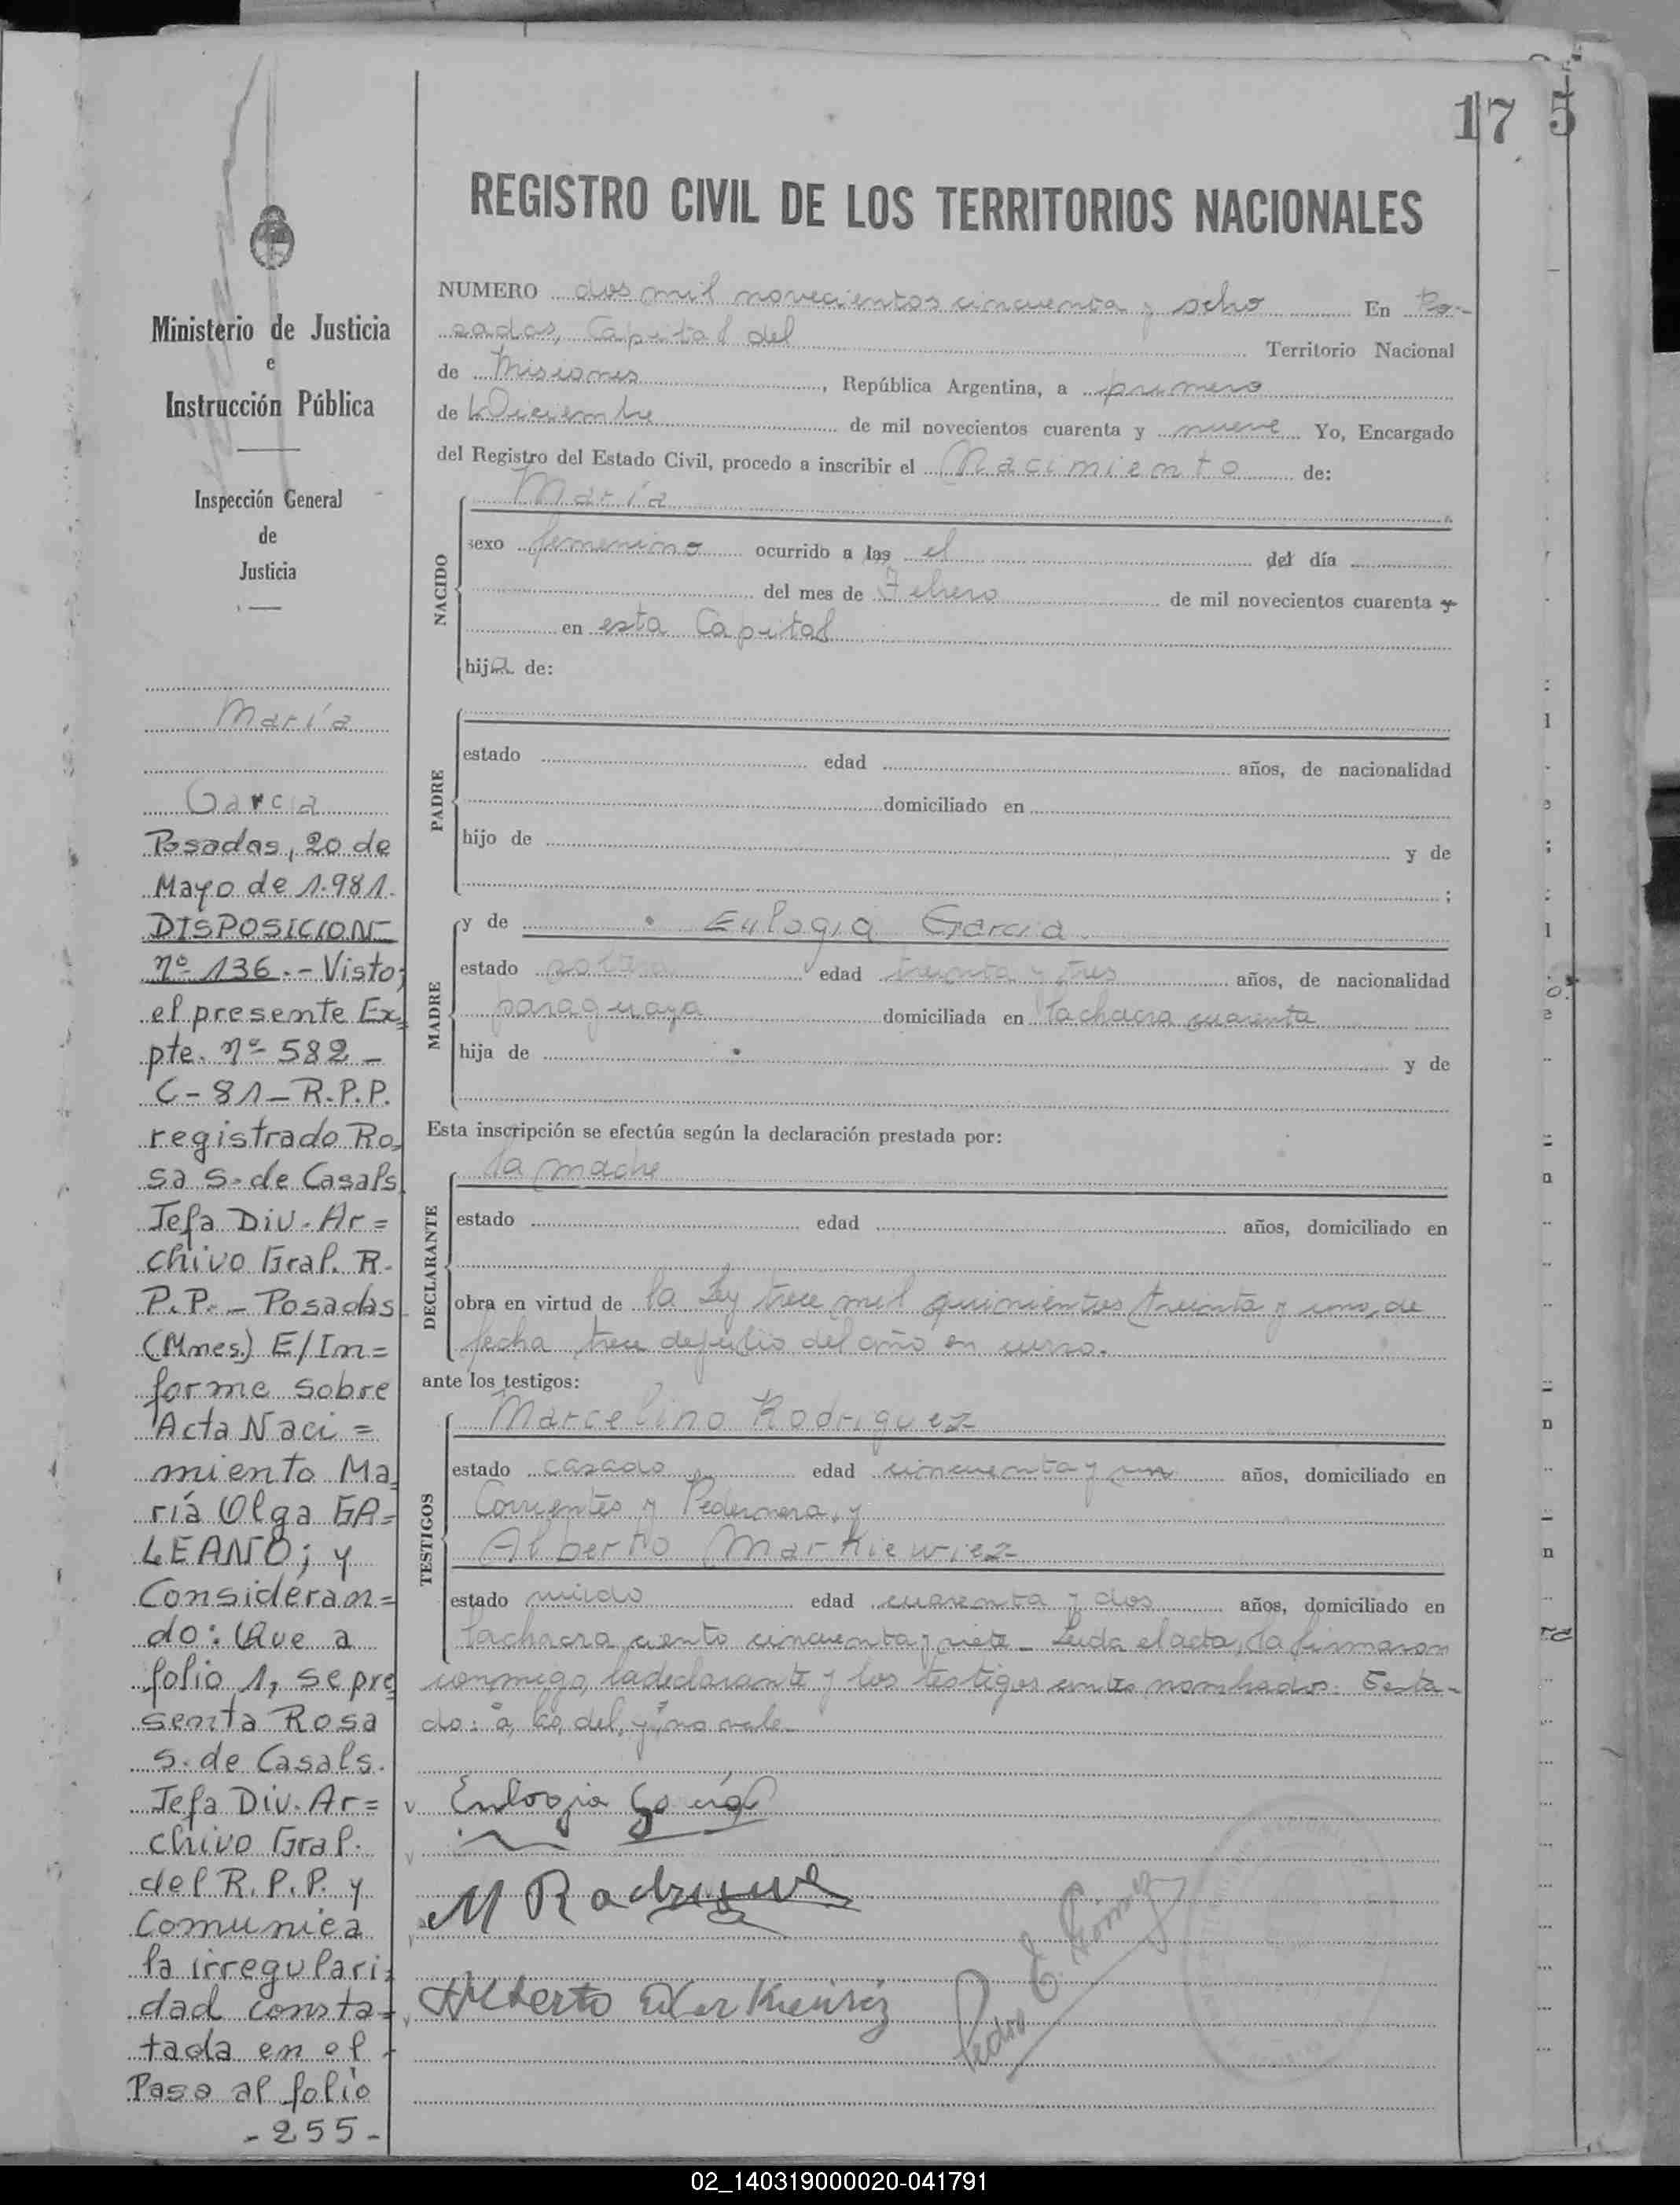 17 5
REGISTRO CIVIL DE LOS TERRITORIOS NACIONALES
Ministerio de Justicia
e
Instrucción Pública
Inspección General
de
Justicia
María
Garcia
Posadas, 20 de
Mayo de 1.981.
DISPOSICION
Nº 136.- Visto;
el presente Ex=
pte. Nº 582 -
C-81- R.P.P.
registrado Ro=
sa S. de Casals
Jefa Div. Ar=
chivo Gral. R.
P.P. - Posadas
(Mnes.) E/In=
forme sobre
Acta Naci=
miento Ma=
ría Olga GA=
LEANO; y
Consideran=
do: Que a
folio 1, se pre=
senta Rosa
S. de Casals.
Jefa Div. Ar=
chivo Gral.
del R.P.P. y
Comunica
la irregulari=
dad consta=
tada en el
Pasa al folio
- 255 -
NUMERO dos mil novecientos cincuenta y ocho En Po-
sadas, Capital del Territorio Nacional
de Misiones, República Argentina, a primero
de Diciembre de mil novecientos cuarenta y nueve Yo, Encargado
del Registro del Estado Civil, procedo a inscribir el Nacimiento de:
NACIDO
María
sexo femenino ocurrido a las el del día
del mes de Febrero de mil novecientos cuarenta y
en esta Capital
hija de:
PADRE
estado edad años, de nacionalidad
domiciliado en
hijo de y de
;
MADRE
y de Eulogia Garcia
estado soltera edad treinta y tres años, de nacionalidad
paraguaya domiciliada en la chacra cuarenta
hija de y de
Esta inscripción se efectúa según la declaración prestada por:
DECLARANTE
la madre
estado edad años, domiciliado en
obra en virtud de la Ley trece mil quinientos treinta y uno, de
fecha trece de julio del año en curso.
ante los testigos:
TESTIGOS
Marcelino Rodriguez
estado casado edad cincuenta y un años, domiciliado en
Corrientes y Pedernera, y
Alberto Markiewiez
estado viudo edad cuarenta y dos años, domiciliado en
la chacra ciento cincuenta y siete - Leida el acta, la firmaron
conmigo, la declarante y los testigos antes nombrados. Testa-
do: a, las, del, y, no vale.
Eulogia García
M Rodriguez
Alberto Markiewiez
Pedro E. Gómez
02_140319000020-041791